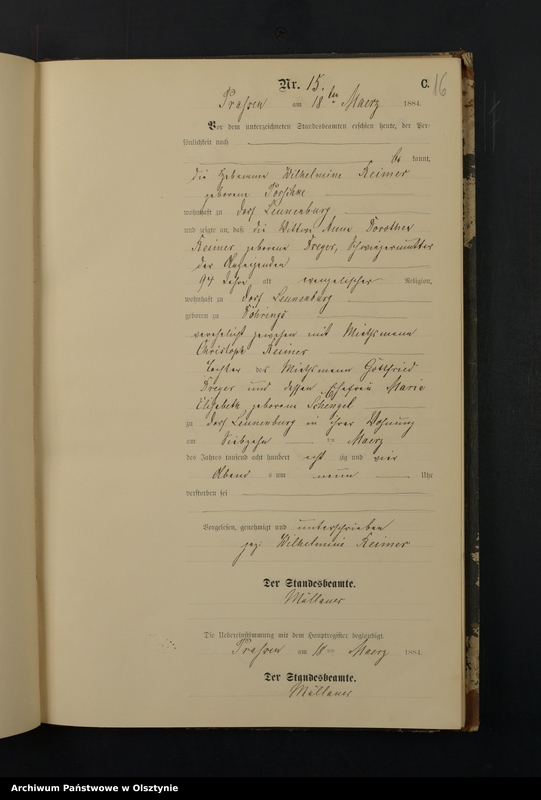 Nr. 15. C. 16
am 18ten Maerz 1884.
Vor dem unterzeichneten Standesbeamten erschien heute, der Per-
sönlichkeit nach
be kannt,
die Hebamme Wilhelmine Reimer
geborene
wohnhaft zu Dorf Leunenburg
und zeigte an, daß die Wittwe Anna Dorothea
Reimer geborene Dreyer, Schwiegermutter
der Anzeigenden
94 Jahre alt evangelischer Religion,
wohnhaft zu Dorf Leunenburg
geboren zu
verehelicht gewesen mit Miethsmann
Christoph Reimer
Tochter des Miethsmann Gottfried
Dreyer und dessen Ehefrau Marie
Elisabeth geborene Schengel
zu Dorf Leunenburg in ihrer Wohnung
am Siebzehn ten Maerz
des Jahres tausend acht hundert acht zig und vier
Abend s um neun Uhr
verstorben sei
Vorgelesen, genehmigt und unterschrieben
gez: Wilhelmine Reimer
Der Standesbeamte.
Die Uebereinstimmung mit dem Hauptregister beglaubigt.
am 18ten Maerz 1884.
Der Standesbeamte.
Archiwum Państwowe w Olsztynie